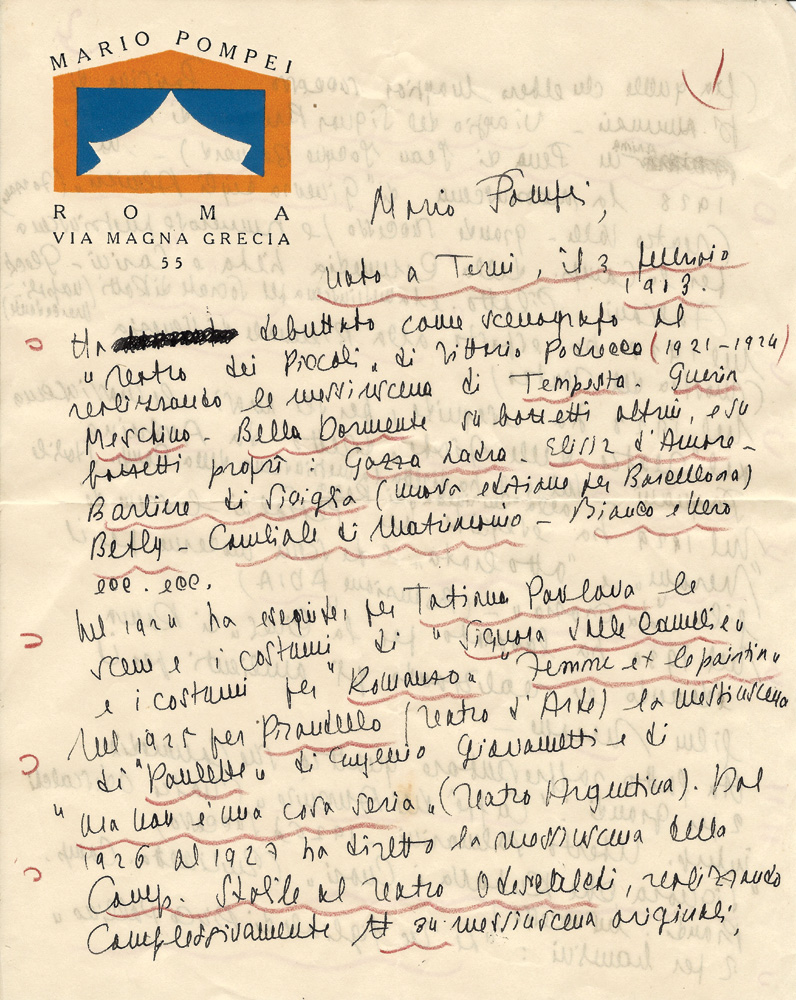 MARIO POMPEI
ROMA
VIA MAGNA GRECIA
55
Mario Pompei,
nato a Terni, il 3 febbraio
1903.
Ha debuttato come scenografo al
"Teatro dei Piccoli" di Vittorio Podrecca (1921-1924)
realizzando le messinscena di Tempesta - Guerin
Meschino - Bella Dormente su bozzetti altrui, e su
bozzetti propri: Gazza Ladra - Elisir d'Amore -
Barbiere di Siviglia (nuova edizione per Barcellona)
Betly - Cambiale di Matrimonio - Bianco e Nero
ecc. ecc.
Nel 1924 ha eseguite, per Tatiana Pavlova le
scene e i costumi di "Signora dalle Camelie"
e i costumi per "Romanzo" "Femme et le pantin"
Nel 1925 per Pirandello (Teatro d'Arte) la messinscena
di "Paulette" di Eugenio Giovannetti e di
"Ma non è una cosa seria" (Teatro Argentina). Dal
1926 al 1927 ha diretto la messinscena della
Comp. Stabile al Teatro Odescalchi, realizzando
complessivamente 34 messinscena originali,